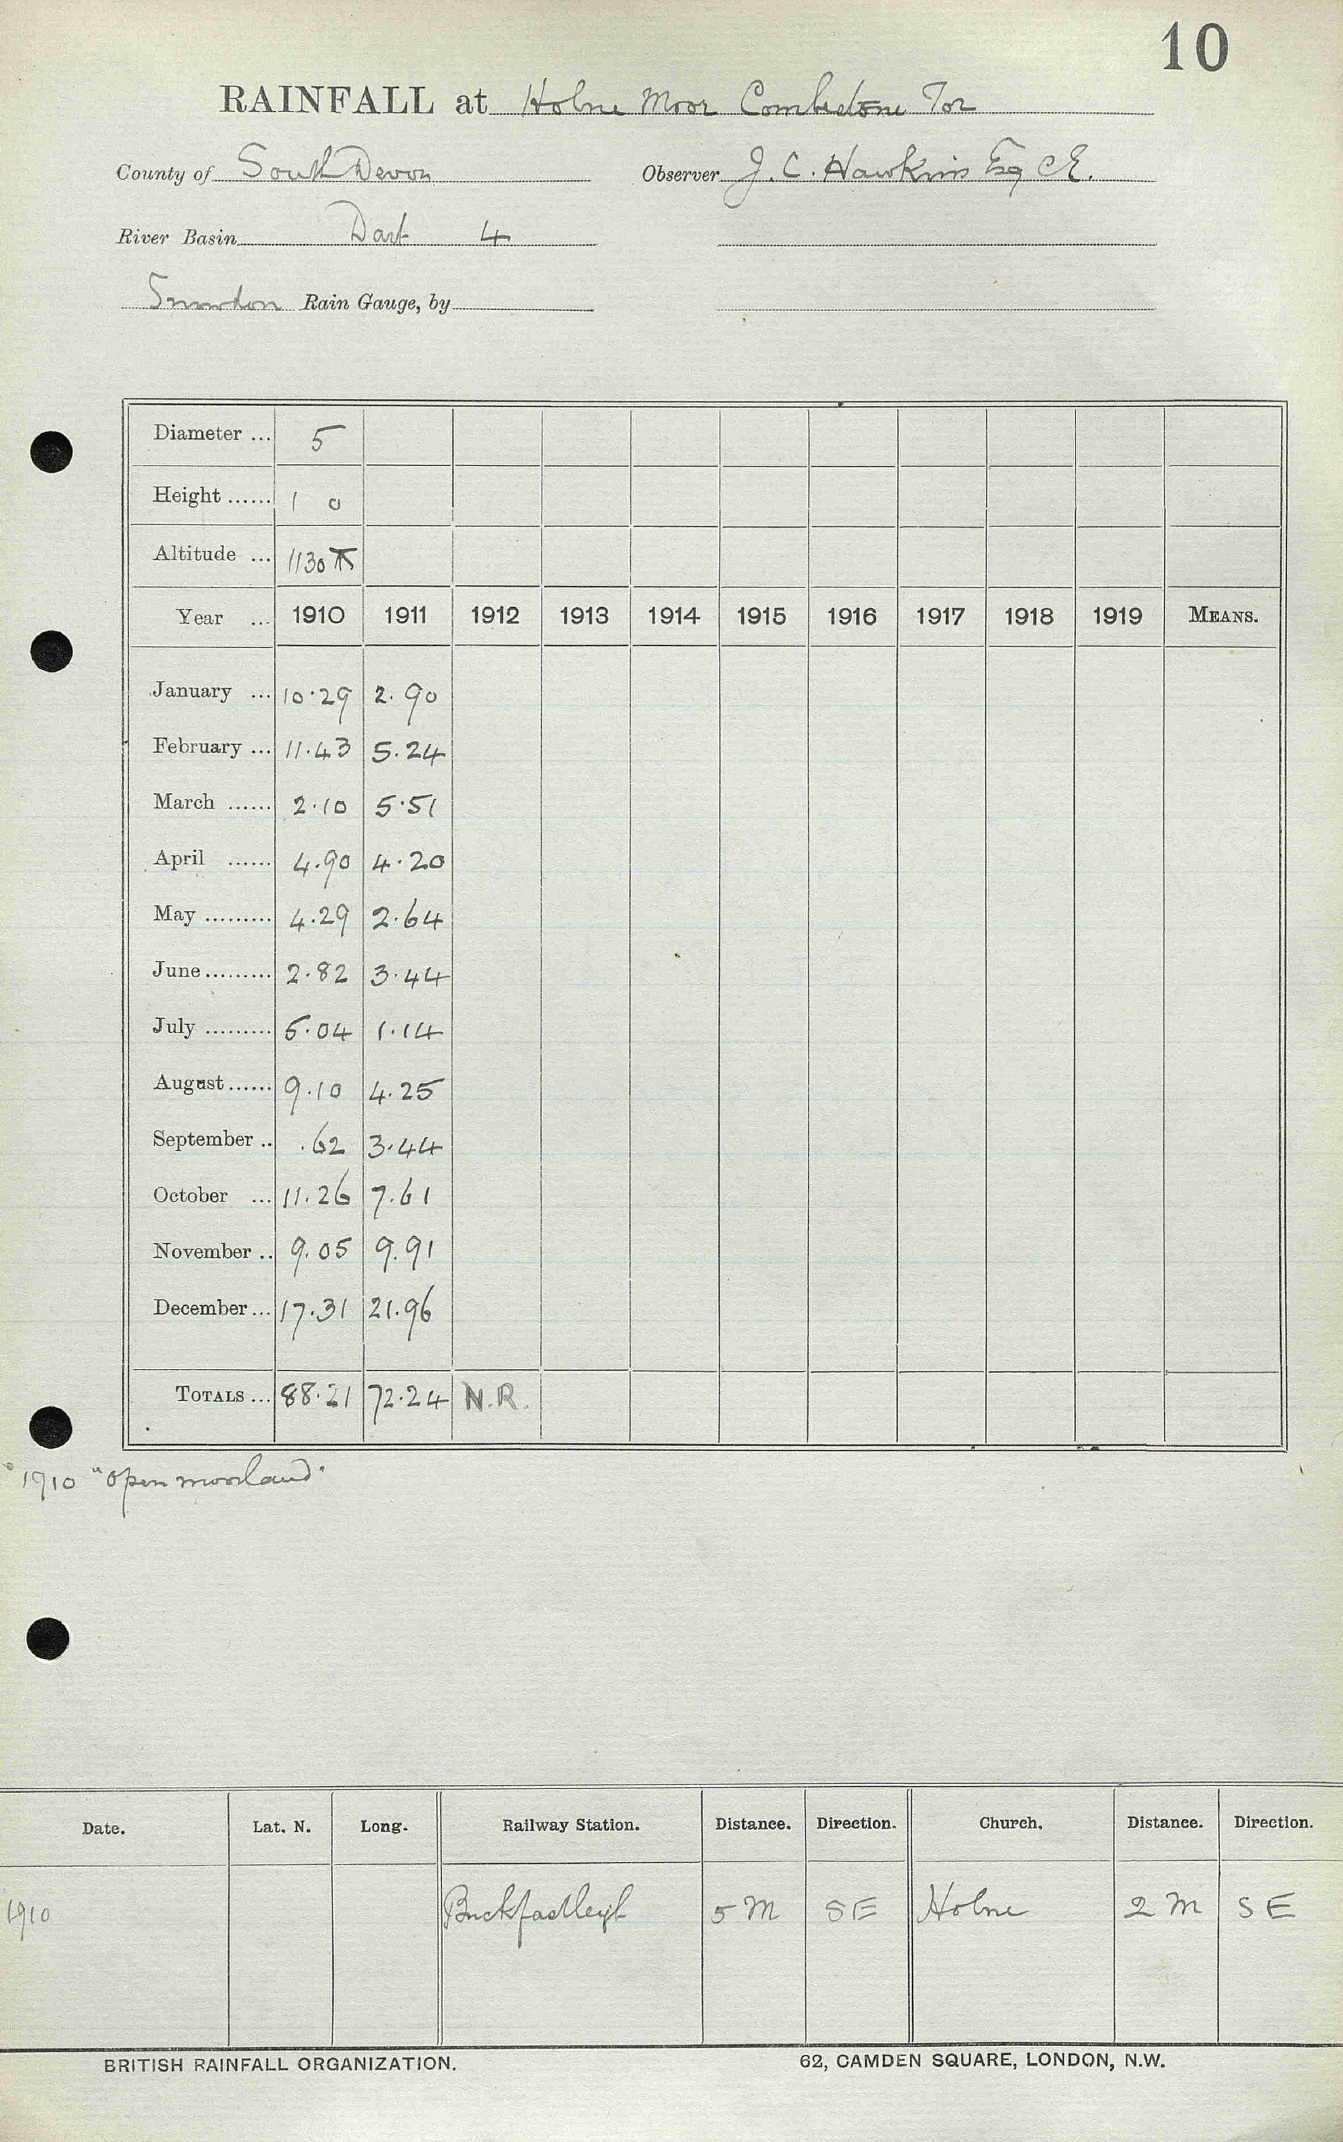 10
RAINFALL at Holne Moor Combestone Tor
County of South Devon Observer J. C. Hawkins Esq C.E.
River Basin Dart 4
Snowdon Rain Gauge, by
Diameter ... 5
Height ...... 1 0
Altitude ... 1130
Year ... 1910 1911 1912 1913 1914 1915 1916 1917 1918 1919 MEANS.
January ... 10.29 2.90
February ... 11.43 5.24
March ...... 2.10 5.51
April ...... 4.90 4.20
May ......... 4.29 2.64
June ......... 2.82 3.44
July ......... 5.04 1.14
August ...... 9.10 4.25
September .. .62 3.44
October ... 11.26 7.61
November .. 9.05 9.91
December ... 17.31 21.96
TOTALS ... 88.21 72.24 N.R.
1910 "Open moorland"
Date. Lat. N. Long. Railway Station. Distance. Direction. Church. Distance. Direction.
1910 Buckfastleigh 5 M SE Holne 2 M SE
BRITISH RAINFALL ORGANIZATION. 62, CAMDEN SQUARE, LONDON, N.W.